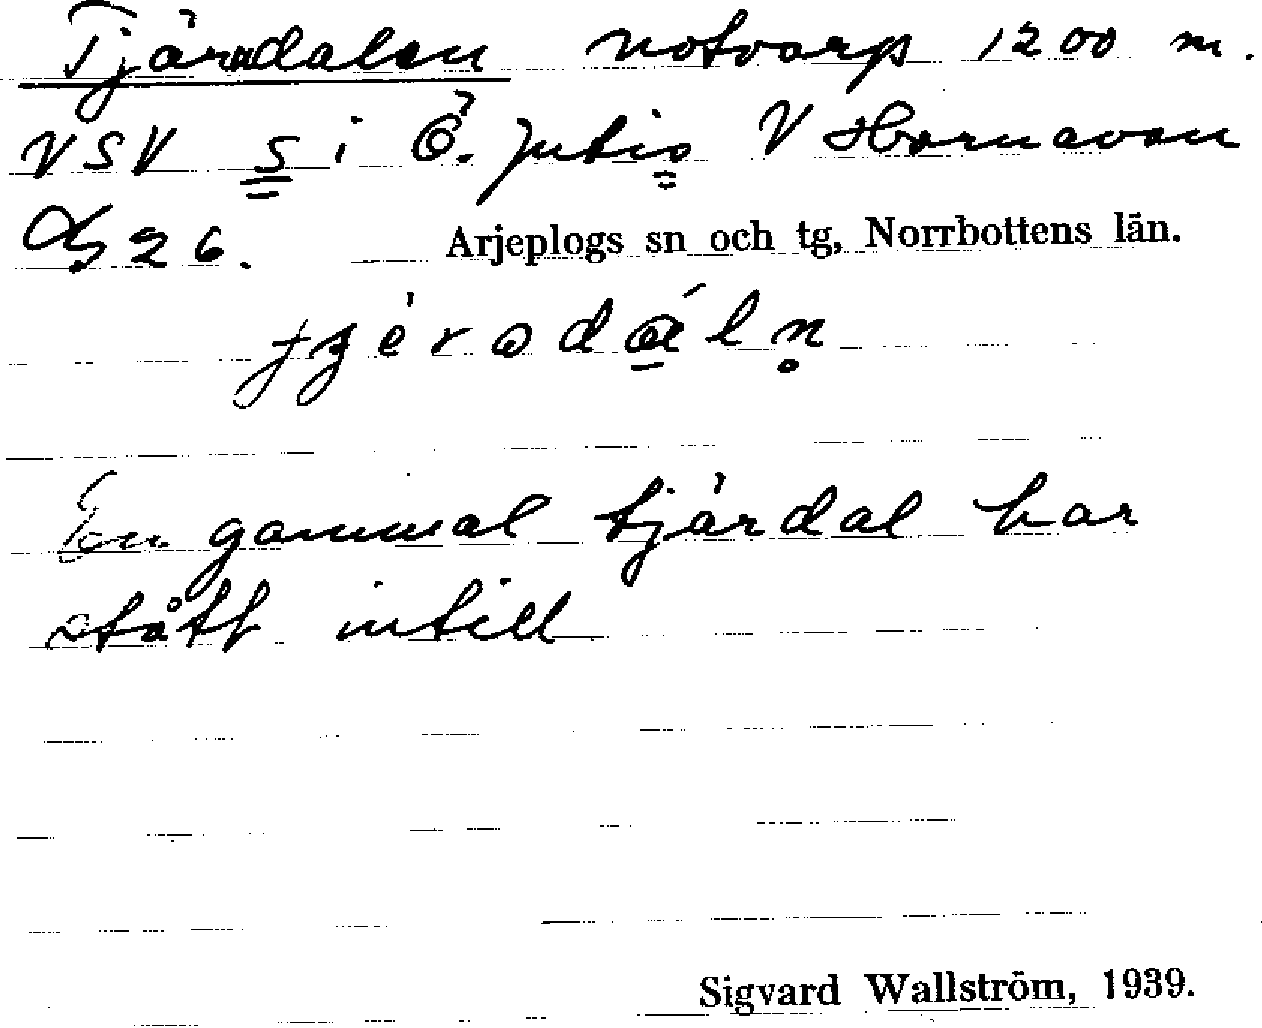 Tjärudalen notvarp 1200 m.
VSV s i Ö. Jutis V Hornavan
26.
Arjeplogs sn och tg, Norrbottens län.
En gammal tjärdal har
stått intill
Sigvard Wallström, 1939.